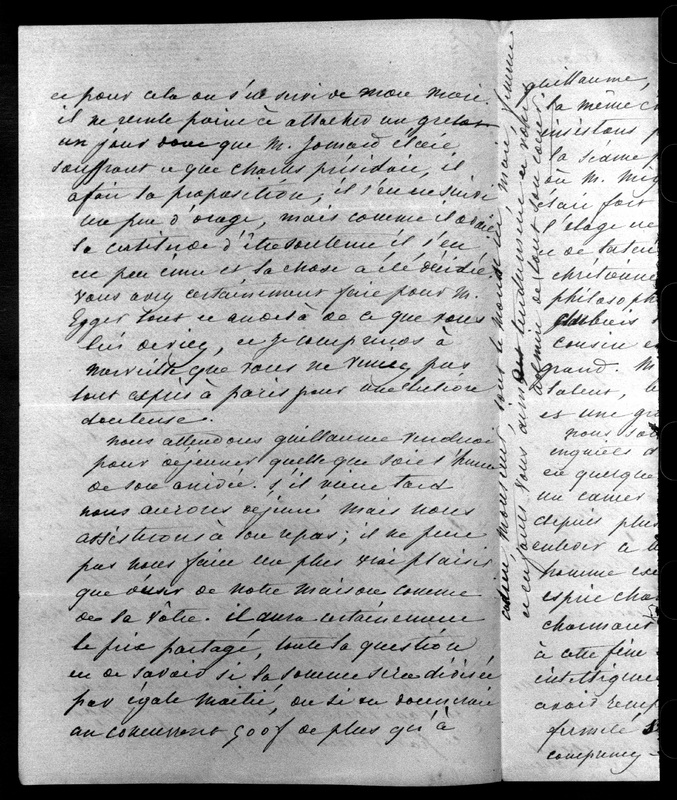 ce pour cela on s'est servi de mon mari.
il ne reste point à attacher un grelot
un jour donc que M. Jomard était
souffrant et que Charles présidait, il
a fait la proposition; il s'en est suivi
un peu d'orage, mais comme il avait
la certitude d'être soutenu il s'en
est peu ému et la chose a été décidée.
vous avez certainement fait pour M.
Egger tout et au delà de ce que vous
lui deviez, et je comprends à
merveille que vous ne veniez pas
tout exprès à paris pour une élection
douteuse.
nous attendons guillaume vendredi
pour déjeuner quelle que soit l'heure
de son arrivée. s'il vient tard
nous aurons déjeuné mais nous
assisterons à son repas; il ne peut
pas nous faire un plus vrai plaisir
que d'user de notre maison comme
de la vôtre. il aura certainement
le prix partagé, toute la question
est de savoir si la somme sera divisée
par égale moitié, ou si on donnerait
au concurrent 500f de plus qu'à
adieu, monsieur, tout le monde ici, mari, femme
et enfants vous aiment tendrement et votre
amie de tout son cœur
guillaume,
la même
insistons
la séance
où M.
était fort
l'éloge
et de
chrétienne
philosoph
cousin
grand. M.
talent,
et une
nous
inquiets
en quelque
un cancer
depuis plus
entier à
homme
esprit
charmant
à cette fine
intelligence
avait
fermeté
comprenez